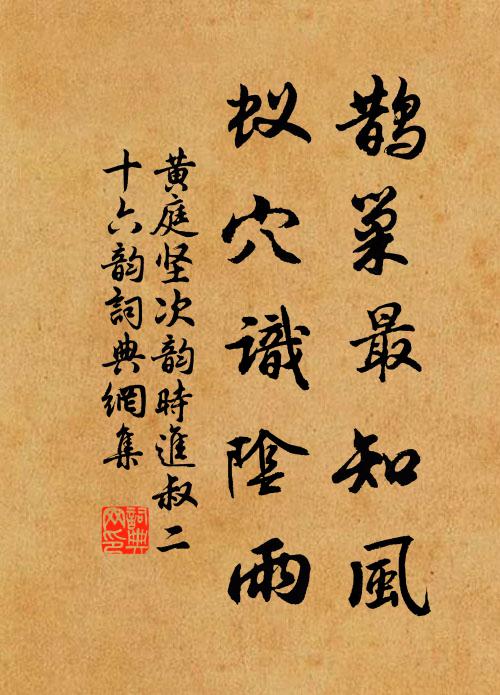 鹊巢最知風
蚁穴識陰雨
黄庭坚次韵時進叔二
十六韵詞典網集